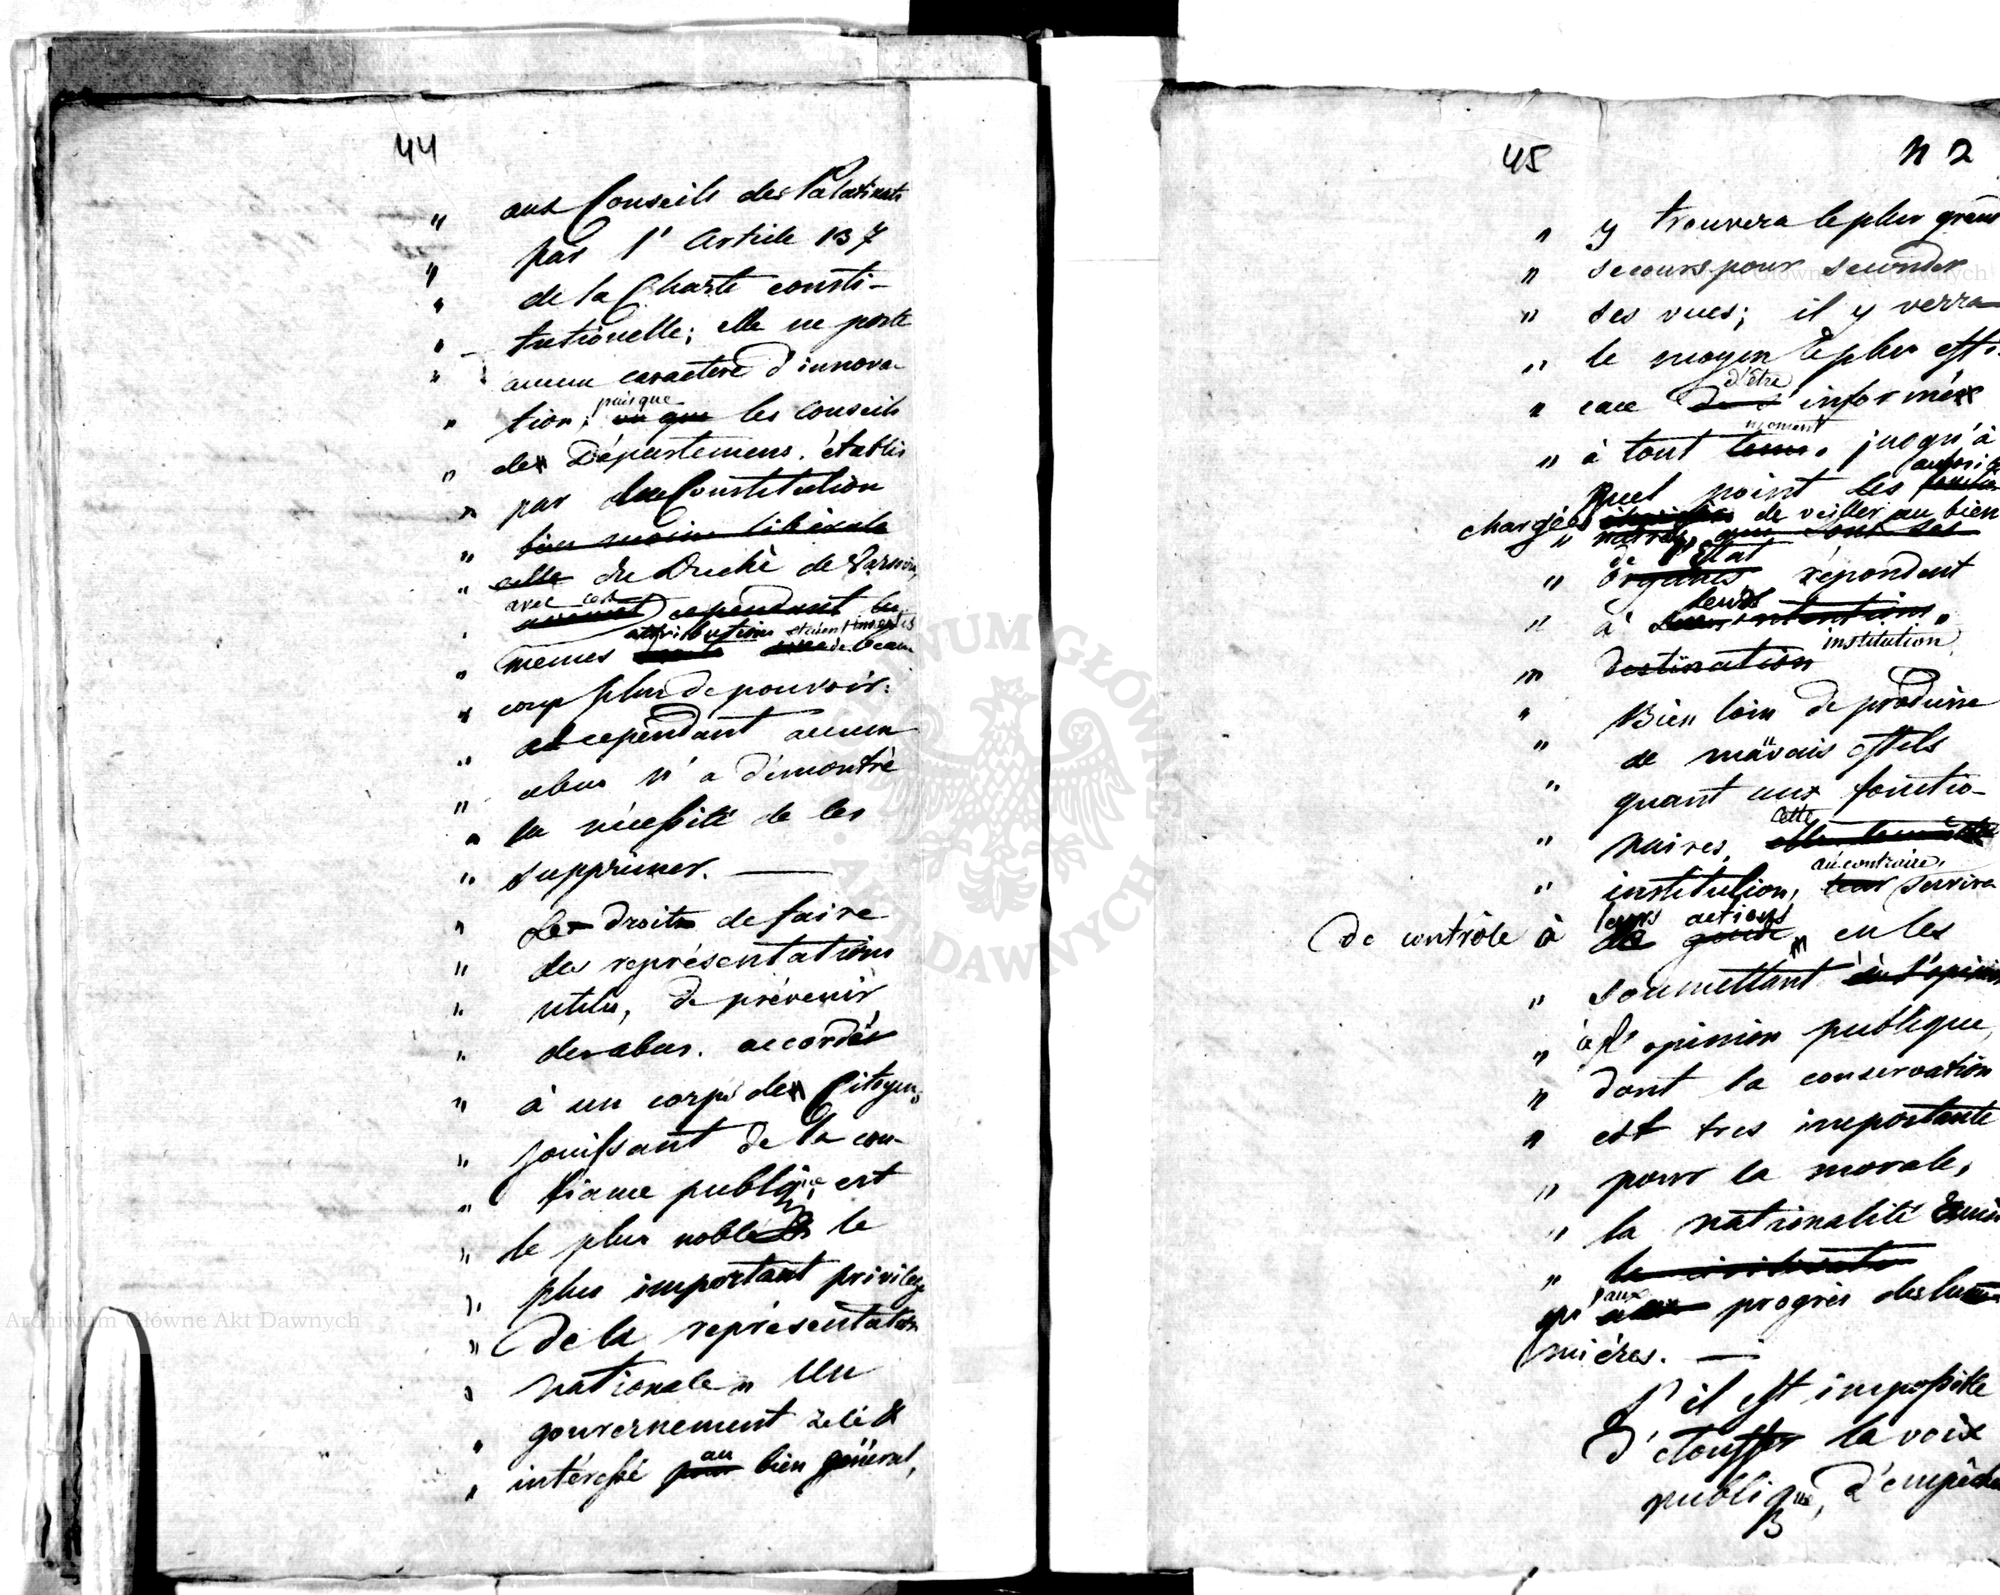 44
" aux Conseils des Palatinats
" par l' Article 137
" de la Charte consti-
" tutionelle; elle ne porte
" aucun caractere d'innova-
puisque
" tion; vu que les conseils
" des Départemens. établis
" par la Constitution
" bien moins libérale
" celle du Duché de Varsovie,
avec cet
cependant les
attributions étaient investis
" mêmes de beau
" coup plus de pouvoir:
" et cependant aucun
" abus n'a démontré
" la nécessité de les
" supprimer. —
" Le droit de faire
" des représentations
" utiles, de prévenir
" des abus. accordés
" à un corps de Citoyens
" jouissant de la con-
" fiance publique, est
" le plus noble le
" plus important privilege
" de la représentation
" nationale " Un
" gouvernement zelé &
au
" intéressé pour bien général,
45
n 2
" y trouvera le plus grand
" secours pour seconder
" ses vues; il y verra
" le moyen le plus effi-
d'être
" cace informé
moment
" à tout tems. jusqu'à
autorités
quel point les
chargées de veiller au bien
" que sont ses
de l'Etat
" organes répondent
leurs
" à intentions.
institution
" destination
" Bien loin de produire
" de mauvais effets
" quant aux fonctio-
cette
" naires,
au contraire,
" institution, leur servira
leurs actions
de contrôle à de guide " en les
" soumettant à l'opinion
" à l'opinion publique,
" dont la conservation
" est tres importante
" pour la morale,
" la nationalité
" la
aux
qu' progrès des lu
mières. —
S'il est impossible
d'étouffer la voix
publique, d'empêcher